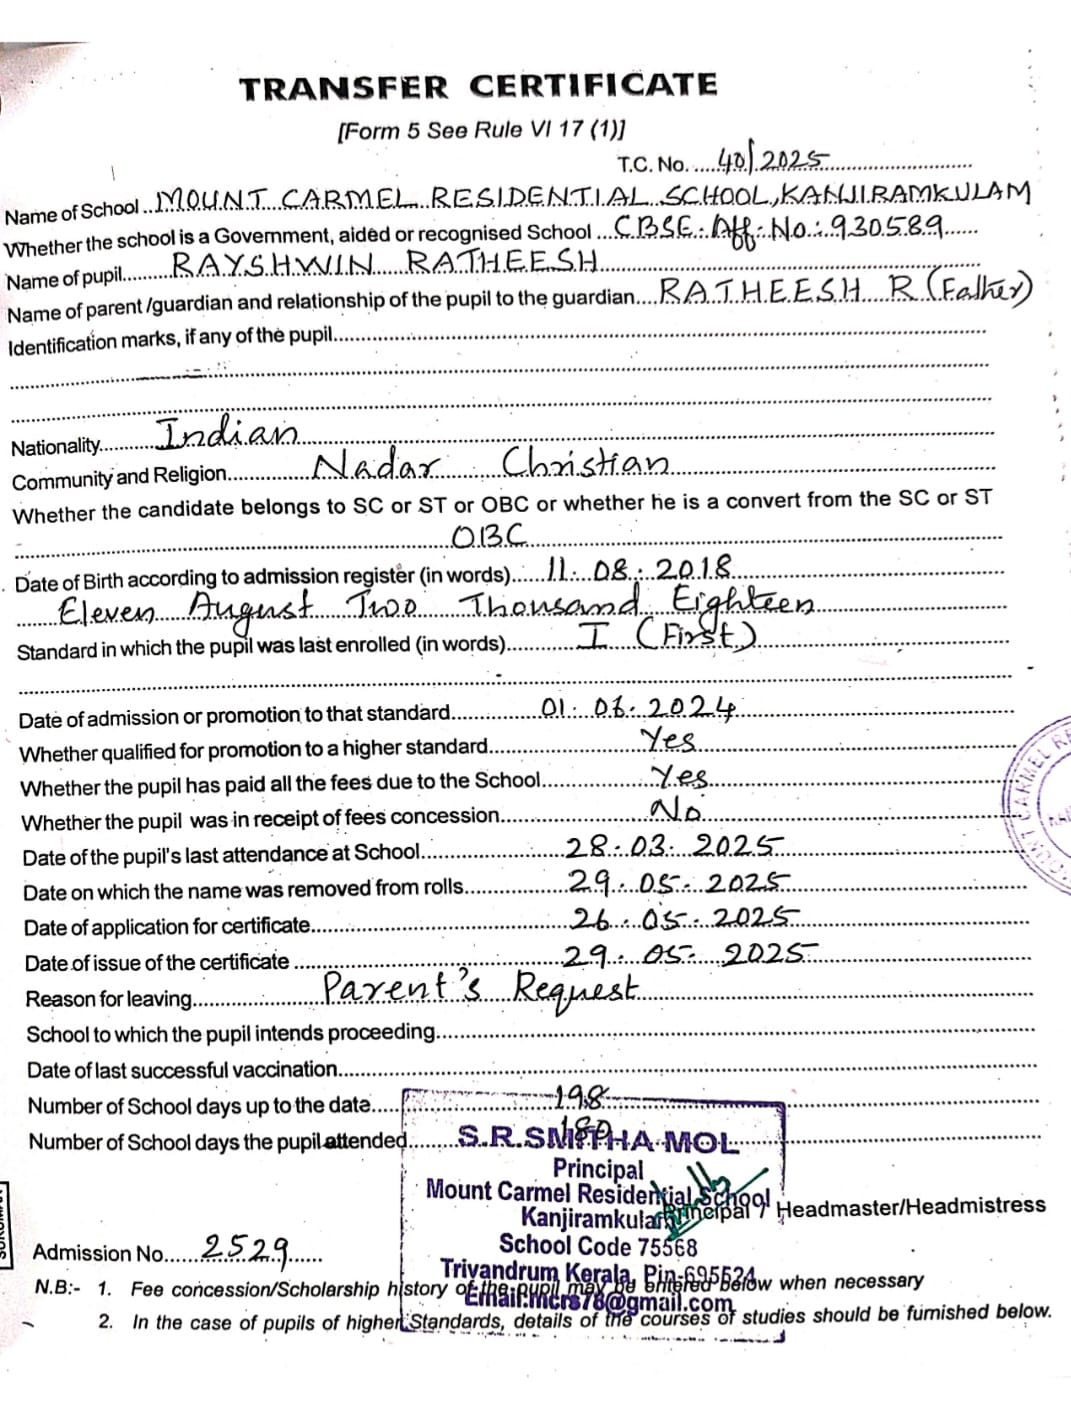 TRANSFER CERTIFICATE
[Form 5 See Rule VI 17 (1)]
T.C. No. 40/2025
Name of School MOUNT CARMEL RESIDENTIAL SCHOOL, KANJIRAMKULAM
Whether the school is a Government, aided or recognised School CBSE. Aff. No.: 930589
Name of pupil RAYSHWIN RATHEESH
Name of parent /guardian and relationship of the pupil to the guardian RATHEESH R (Father)
Identification marks, if any of the pupil
Nationality Indian
Community and Religion Nadar Christian
Whether the candidate belongs to SC or ST or OBC or whether he is a convert from the SC or ST
OBC
Date of Birth according to admission register (in words) 11.08.2018
Eleven August Two Thousand Eighteen
Standard in which the pupil was last enrolled (in words) I (First)
Date of admission or promotion to that standard 01.06.2024
Whether qualified for promotion to a higher standard Yes
Whether the pupil has paid all the fees due to the School Yes
Whether the pupil was in receipt of fees concession No
Date of the pupil's last attendance at School 28.03.2025
Date on which the name was removed from rolls 29.05.2025
Date of application for certificate 26.05.2025
Date of issue of the certificate 29.05.2025
Reason for leaving Parent's Request
School to which the pupil intends proceeding
Date of last successful vaccination
Number of School days up to the date 198
Number of School days the pupil attended
S.R.SMITHA MOL
Principal
Mount Carmel Residential School
Principal / Headmaster/Headmistress
Kanjiramkulam
School Code 75568
Admission No. 2529
Trivandrum Kerala, Pin-695524
N.B:- 1. Fee concession/Scholarship history of the pupil may be entered below when necessary
Email:mcrs78@gmail.com
2. In the case of pupils of higher Standards, details of the courses of studies should be furnished below.